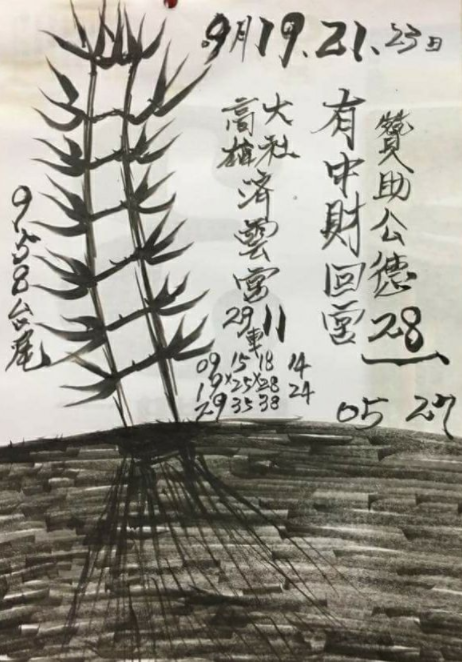 9月19.21.23日
贊助公德28
有中財回宮
大社
高雄濟雲宮
29車11
09 15 18 14
19×25×28 24
29 35 38
05 27
958台尾